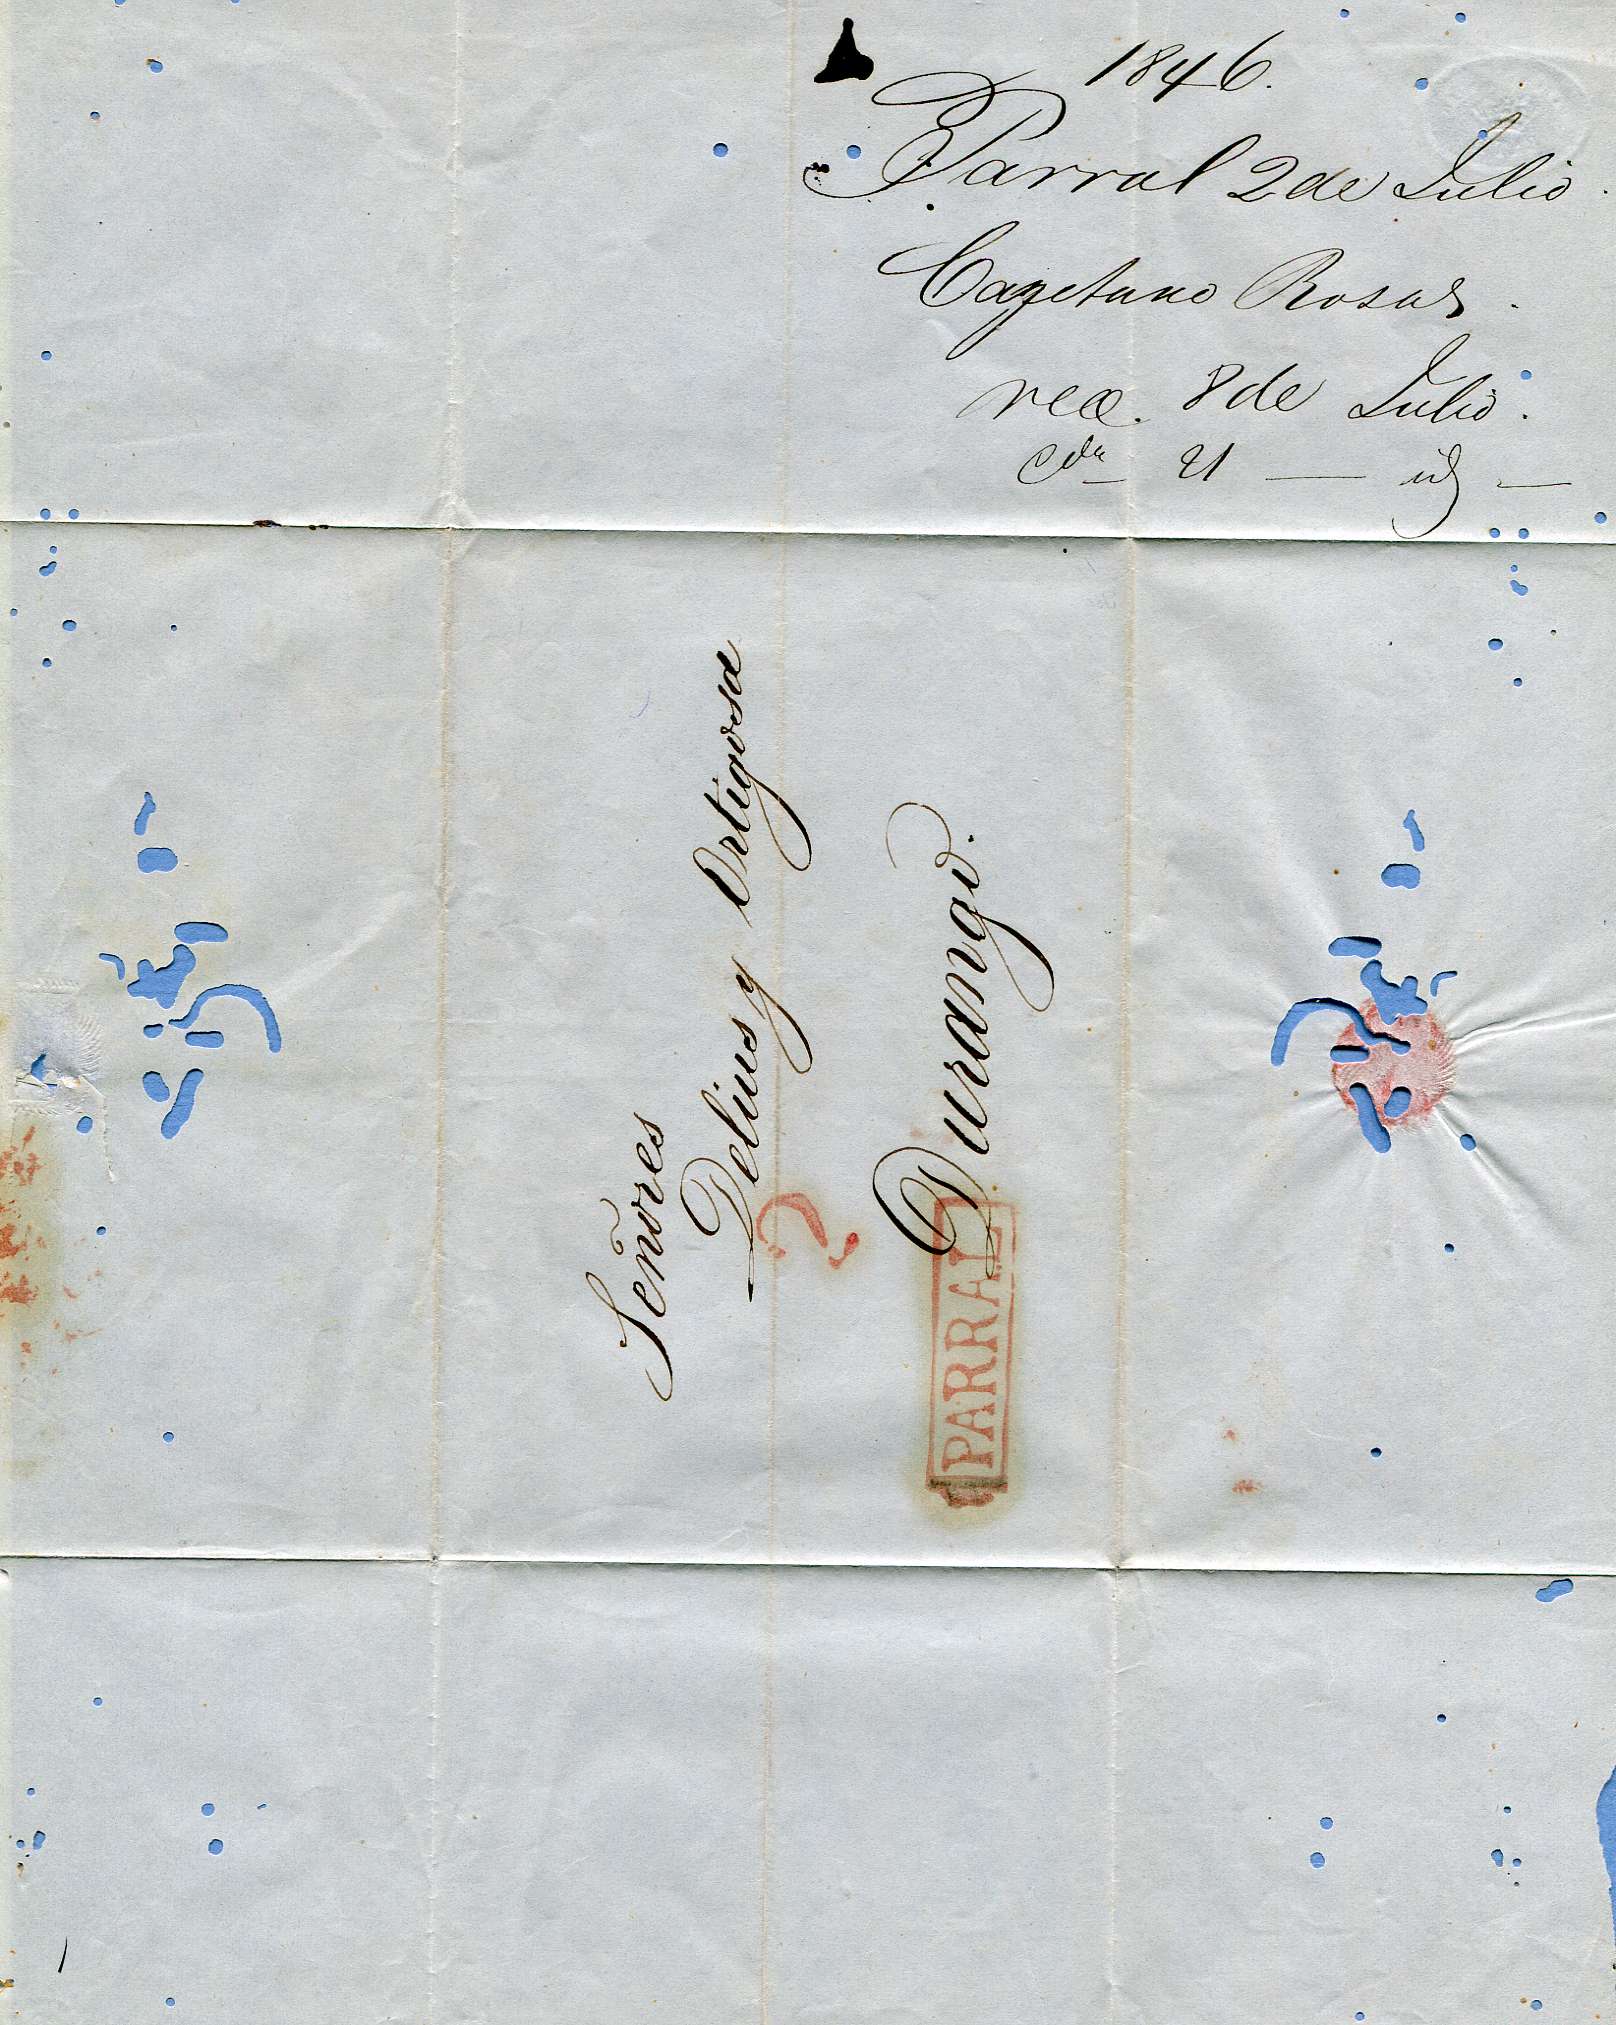 1846.
Parral 2 de Julio
Cayetano Rosas.
rec. 8 de Julio.
cda 21 — id —
Señores
Delius y Ortigosa
2
Durango.
PARRAL